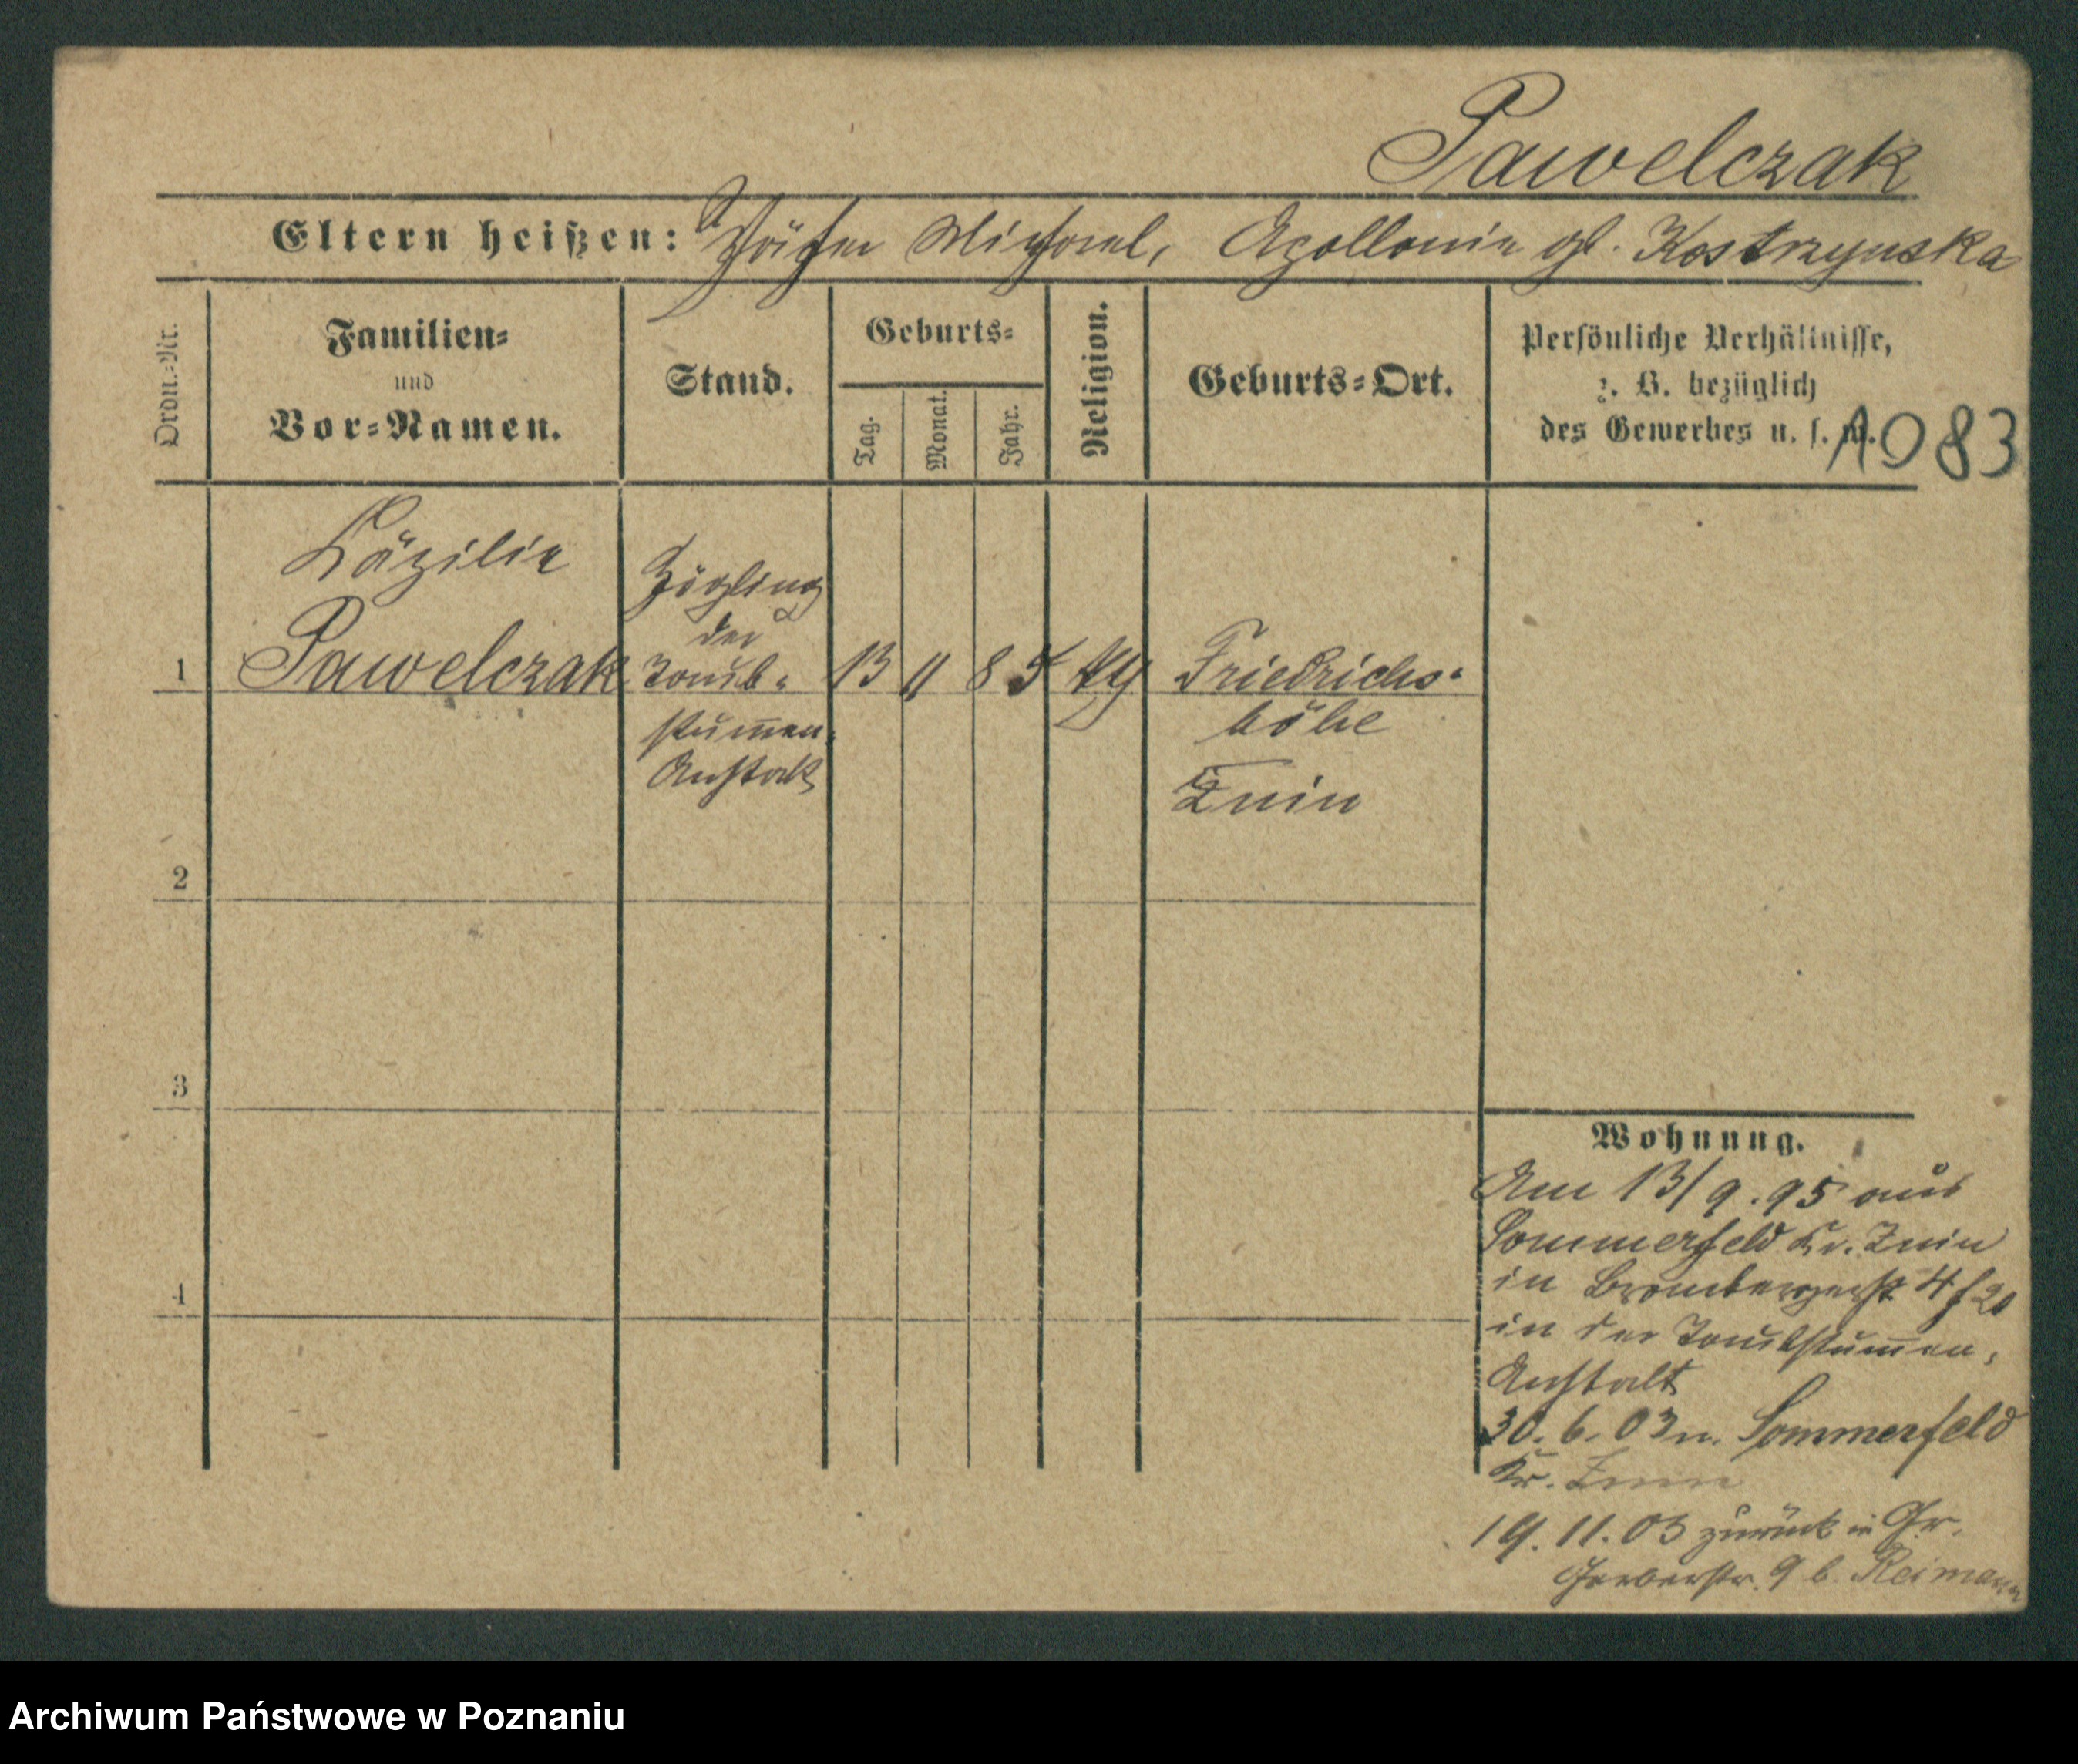 Pawelczak
Eltern heißen: Schäfer Michael, Apollonia gb. Kostrzynska
Ordn.-Nr.
Familien-
und
Vor-Namen.
Stand.
Geburts-
Tag.
Monat.
Jahr.
Religion.
Geburts-Ort.
Persönliche Verhältnisse,
z. B. bezüglich
des Gewerbes u. s. w.
1083
Zäzilie
Pawelczak
Zögling
der
Taub-
stum̅en-
Anstalt
1
13 11 85
Friedrichs-
höhe
Znin
2
3
4
Wohnung.
Am 13/9.95 aus
Sommerfeld Kr. Znin
in Brombergerstr 4
in der Taubstum̅en-
Anstalt
30.6.03 n. Sommerfeld
Kr. Znin
19.11.03 zurück in Gr.
Gerberstr. 9 b. Reimann
Archiwum Państwowe w Poznaniu